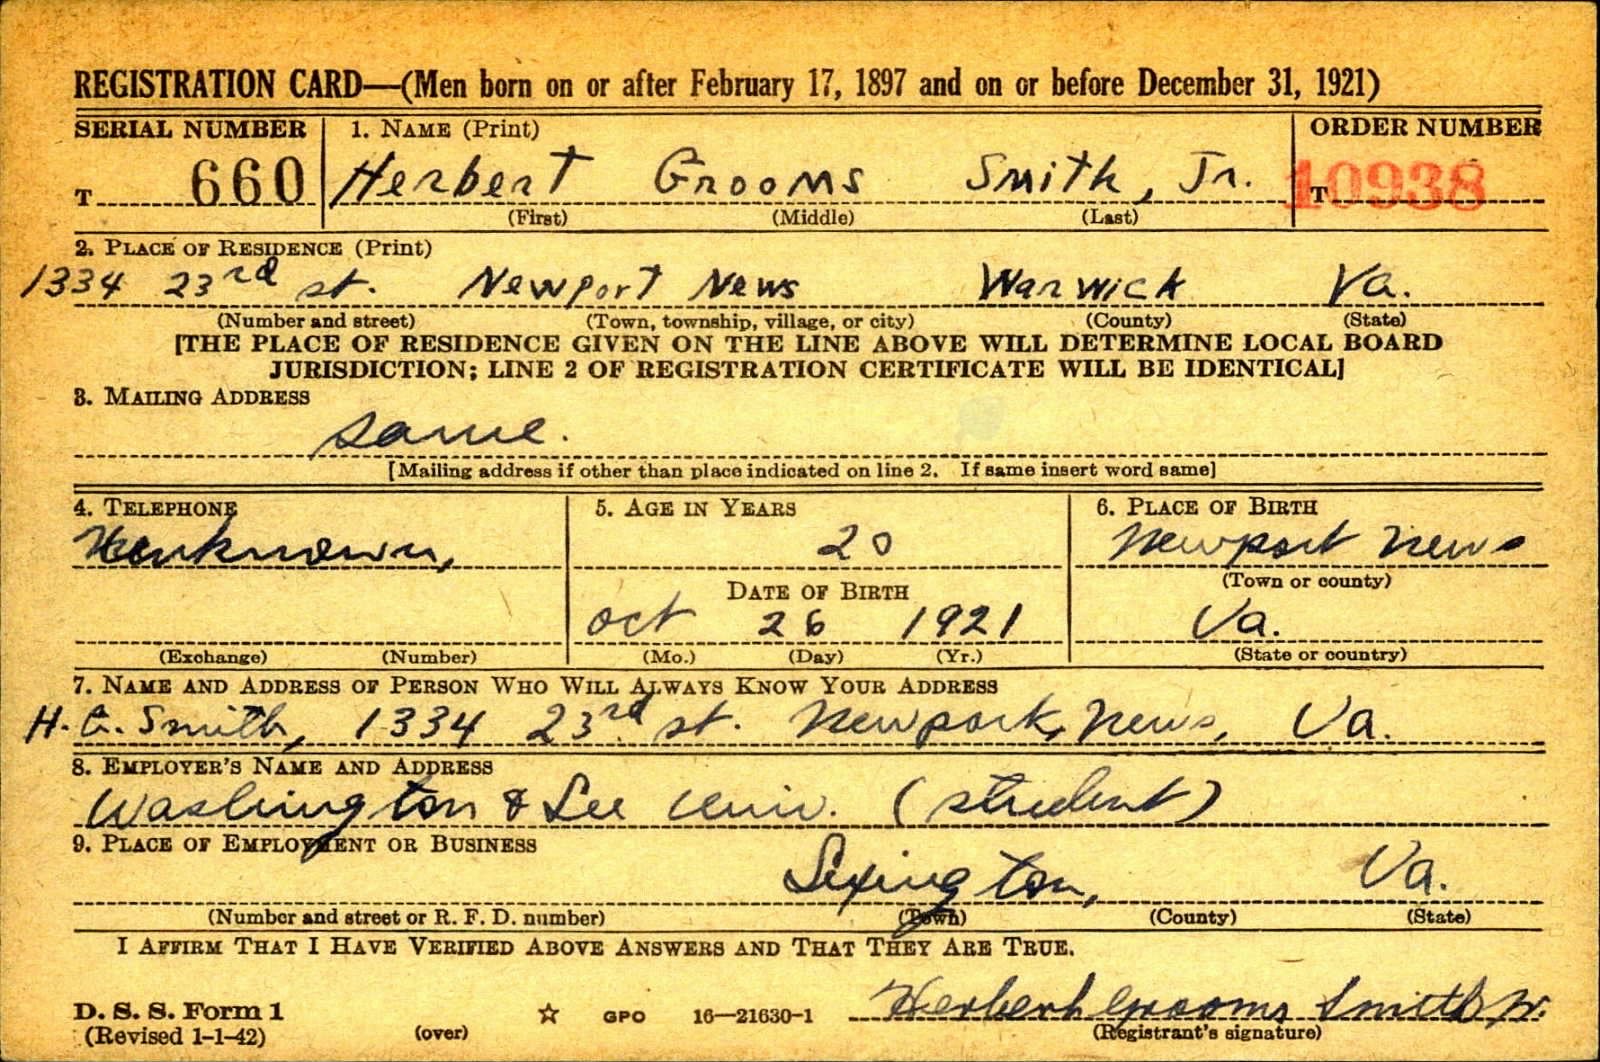 REGISTRATION CARD—(Men born on or after February 17, 1897 and on or before December 31, 1921)
SERIAL NUMBER 1. NAME (Print) ORDER NUMBER
T 660 Herbert Grooms Smith, Jr. T 10938
(First) (Middle) (Last)
2. PLACE OF RESIDENCE (Print)
1334 23rd st. Newport News Warwick Va.
(Number and street) (Town, township, village, or city) (County) (State)
[THE PLACE OF RESIDENCE GIVEN ON THE LINE ABOVE WILL DETERMINE LOCAL BOARD
JURISDICTION; LINE 2 OF REGISTRATION CERTIFICATE WILL BE IDENTICAL]
3. MAILING ADDRESS
same.
[Mailing address if other than place indicated on line 2. If same insert word same]
4. TELEPHONE 5. AGE IN YEARS 6. PLACE OF BIRTH
Unknown, 20 Newport News
(Town or county)
DATE OF BIRTH
Oct 26 1921 Va.
(Exchange) (Number) (Mo.) (Day) (Yr.) (State or country)
7. NAME AND ADDRESS OF PERSON WHO WILL ALWAYS KNOW YOUR ADDRESS
H. G. Smith, 1334 23rd st. Newport, News, Va.
8. EMPLOYER'S NAME AND ADDRESS
Washington & Lee Univ. (student)
9. PLACE OF EMPLOYMENT OR BUSINESS
Lexington, Va.
(Number and street or R. F. D. number) (Town) (County) (State)
I AFFIRM THAT I HAVE VERIFIED ABOVE ANSWERS AND THAT THEY ARE TRUE.
D. S. S. Form 1 ☆ GPO 16—21630-1 Herbert Grooms Smith Jr.
(Revised 1-1-42) (over) (Registrant's signature)